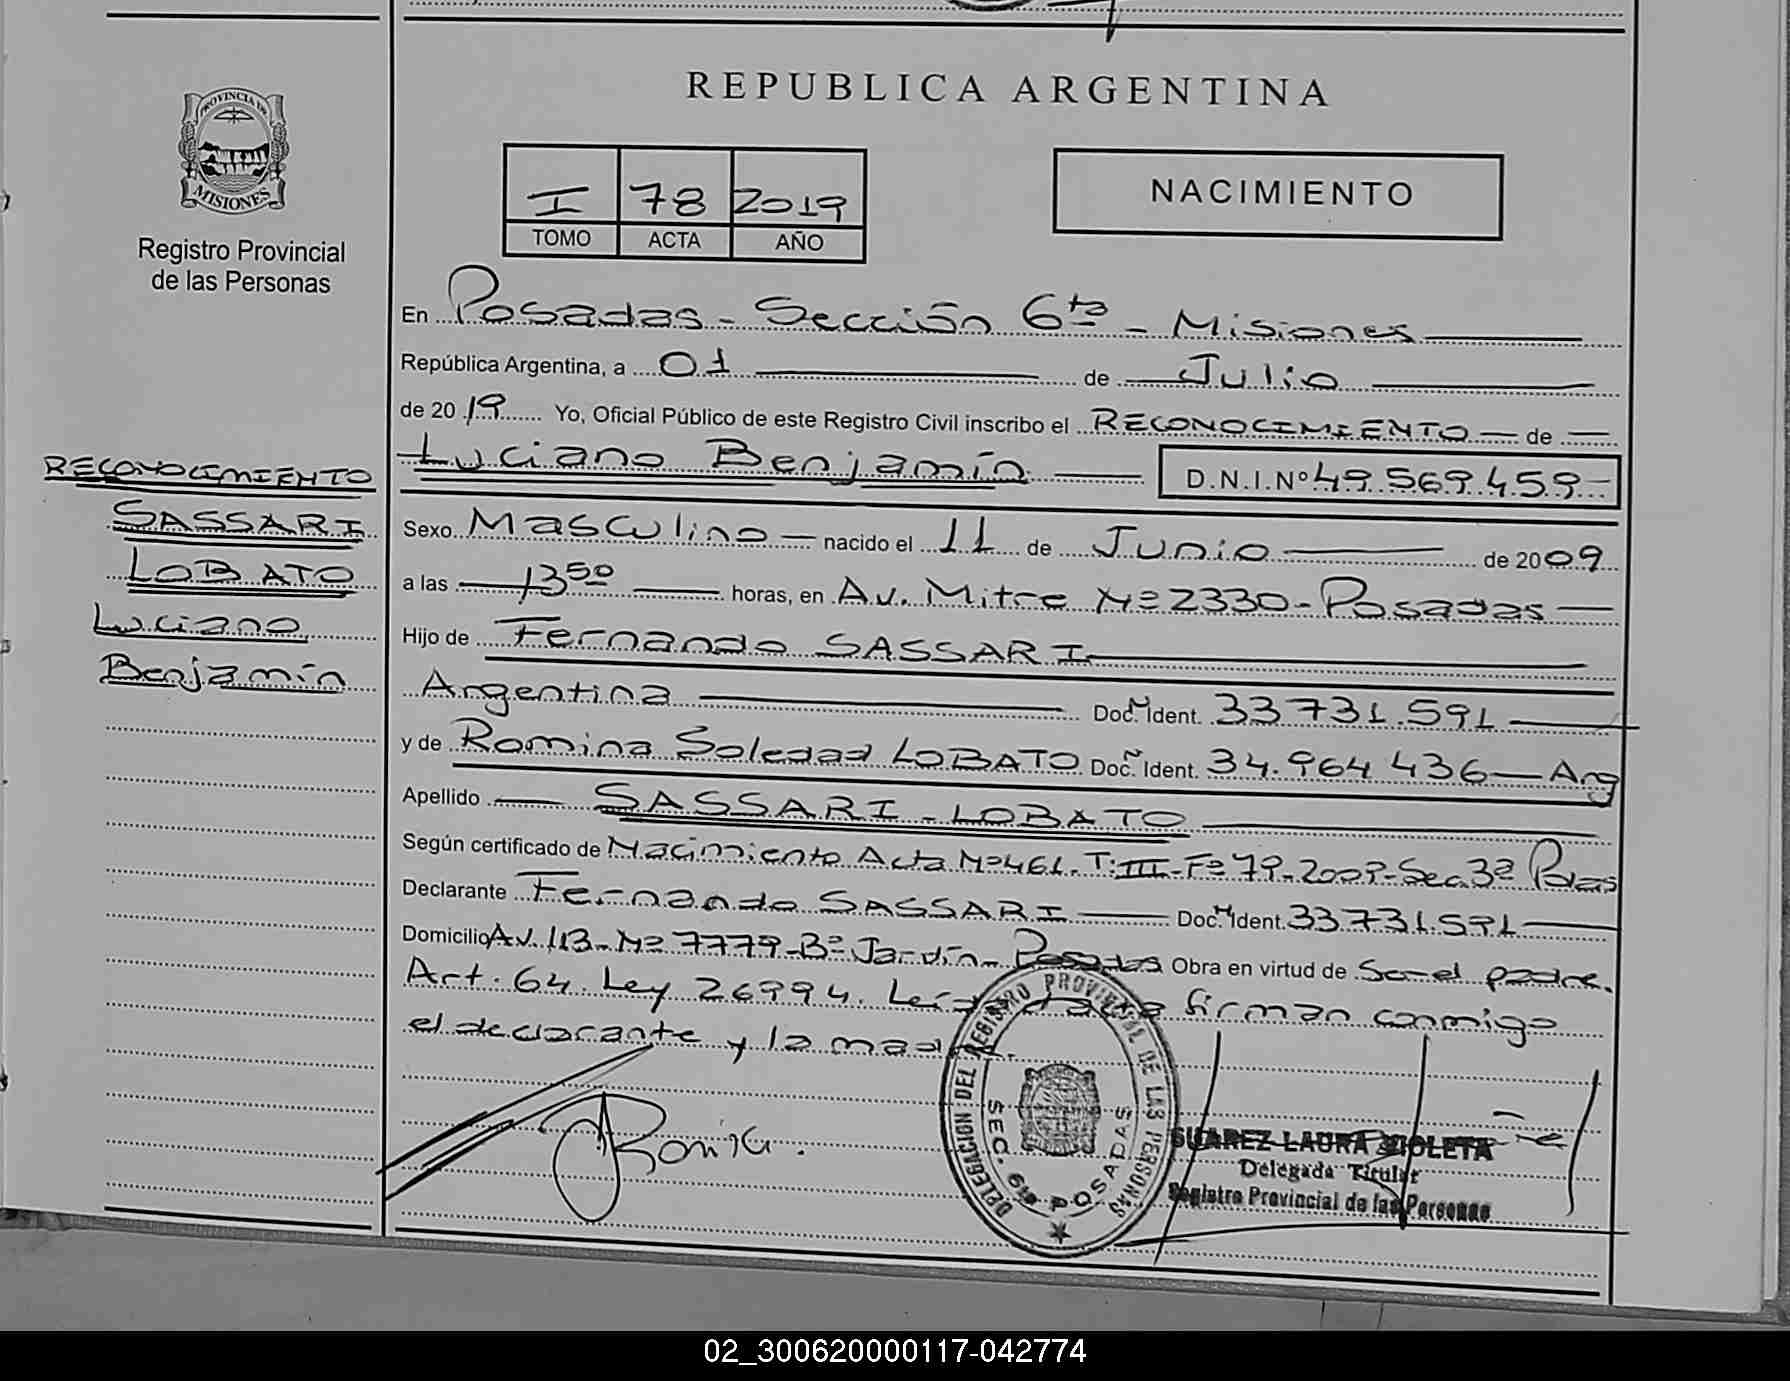 REPUBLICA ARGENTINA
PROVINCIA DE
MISIONES
Registro Provincial
de las Personas
I 78 2019
TOMO ACTA AÑO
NACIMIENTO
En Posadas - Sección 6ta - Misiones
República Argentina, a 01 de Julio
de 2019 Yo, Oficial Público de este Registro Civil inscribo el RECONOCIMIENTO de
Luciano Benjamín D.N.I.Nº 49.569.459
RECONOCIMIENTO
SASSARI
LOBATO
Luciano
Benjamín
Sexo Masculino nacido el 11 de Junio de 2009
a las 13 50 horas, en Av. Mitre Nº 2330 - Posadas
Hijo de Fernando SASSARI
Argentina Doc. Ident. 33.731.591
y de Romina Soledad LOBATO Doc. Ident. 34.964.436 - Arg
Apellido SASSARI - LOBATO
Según certificado de Nacimiento Acta Nº 461. T: III - Fº 79 - 2009 - Sec. 3ª Pdas
Declarante Fernando SASSARI Doc. Ident. 33.731.591
Domicilio Av. 113 - Nº 7779 - Bº Jardín - Posadas Obra en virtud de Ser el padre.
Art. 64. Ley 26994. Leída acta firman conmigo
el declarante y la madre.
Romina.
DELEGACION DEL REGISTRO PROVINCIAL DE LAS PERSONAS
SEC. 6ta POSADAS
SUAREZ LAURA VIOLETA
Delegada Titular
Registro Provincial de las Personas
02_300620000117-042774